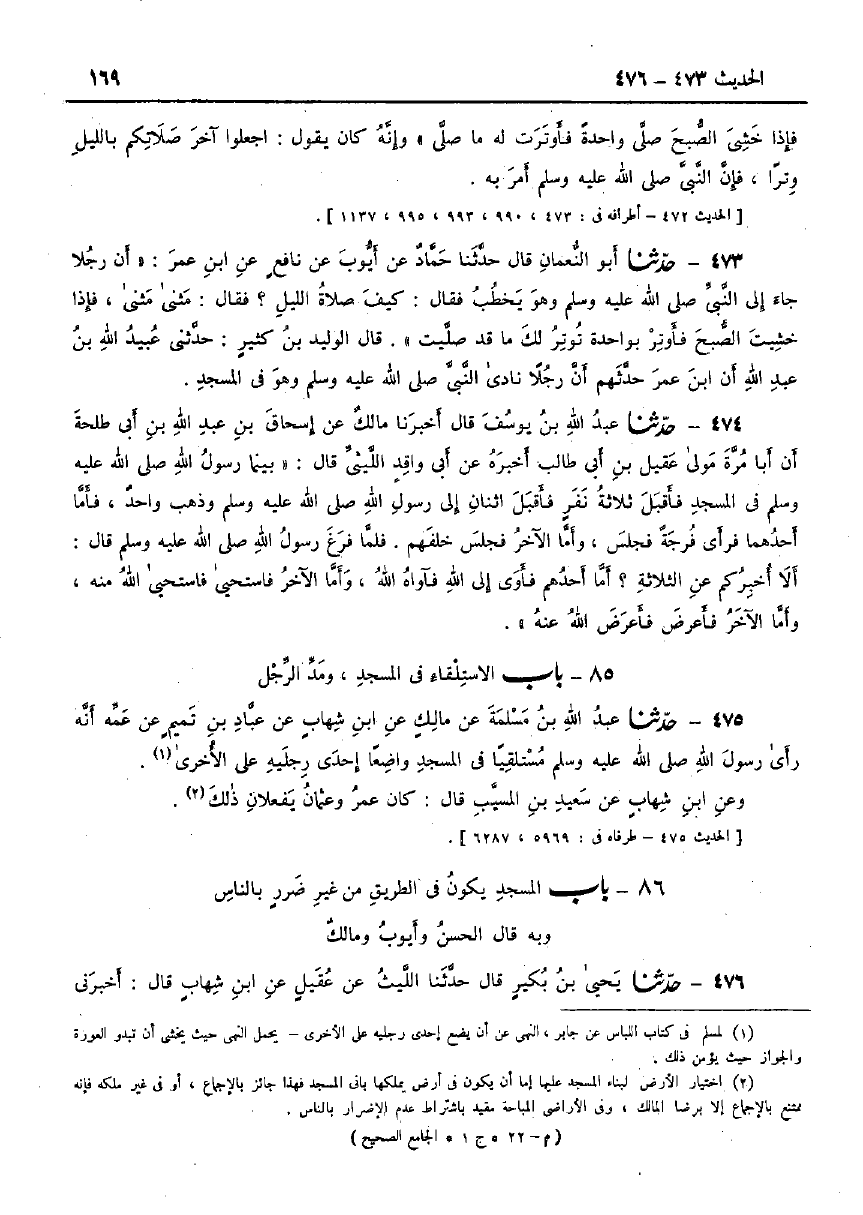 الحديث ٤٧٣ – ٤٧٦ ١٦٩
فإِذا خَشِىَ الصُّبحَ صلَّى واحدةً فأَوتَرَت له ما صلَّى » وإِنَّهُ كان يقول : اجعلوا آخرَ صَلَاتِكم بالليلِ
وِترًا ، فإِنَّ النَّبيَّ صلى الله عليه وسلم أَمرَ به .
[ الحديث ٤٧٢ – أطرافه فى : ٤٧٣ ، ٩٩٠ ، ٩٩٣ ، ٩٩٥ ، ١١٣٧ ] .
٤٧٣ – حدّثنا أبو النُّعمانِ قال حدَّثَنا حَمَّادٌ عن أَيُّوبَ عن نافعٍ عنِ ابنِ عمرَ : « أن رجُلا
جاء إلى النَّبيِّ صلى الله عليه وسلم وهوَ يَخطُبُ فقال : كيفَ صلاةُ الليلِ ؟ فقال : مَثنىٰ مَثنىٰ ، فإِذا
خشِيتَ الصُّبحَ فأَوتِرْ بواحدة تُوتِرُ لكَ ما قد صلَّيت » . قال الوليد بنُ كثيرٍ : حدَّثنى عُبيدُ اللهِ بنُ
عبدِ اللهِ أن ابنَ عمرَ حدَّثَهم أنَّ رجُلًا نادىٰ النَّبيَّ صلى الله عليه وسلم وهوَ فى المسجدِ .
٤٧٤ – حدّثنا عبدُ اللهِ بنُ يوسُفَ قال أخبرَنا مالكٌ عن إسحاقَ بنِ عبدِ اللهِ بنِ أبي طلحةَ
أن أبا مُرَّةَ مَولىٰ عَقيلِ بنِ أبي طالب أخبرَهُ عن أبي واقِدٍ اللَّيثىِّ قال : « بينما رسولُ اللهِ صلى الله عليه
وسلم فى المسجدِ فأَقبَلَ ثلاثةُ نَفَرٍ فأَقبَلَ اثنانِ إلى رسولِ اللهِ صلى الله عليه وسلم وذهب واحدٌ ، فأَمَّا
أحدُهما فرأى فُرجَةً فجلسَ ، وأمَّا الآخرُ فجلسَ خلفَهم . فلمَّا فرَغَ رسولُ اللهِ صلى الله عليه وسلم قال :
أَلَا أُخبِرُكم عنِ الثلاثةِ ؟ أمَّا أحدُهم فأَوَى إلى اللهِ فآواهُ اللهُ ، وَأمَّا الآخرُ فاستحيىٰ فاستحيىٰ اللهُ منه ،
وأمَّا الآخَرُ فأَعرضَ فأَعرَضَ اللهُ عنهُ » .
٨٥ – باب الاستِلْقاء فى المسجدِ ، ومَدِّ الرِّجْل
٤٧٥ – حدّثنا عبدُ اللهِ بنُ مَسْلمَةَ عن مالِكٍ عنِ ابنِ شهابٍ عن عبَّادِ بنِ تَميمٍ عن عَمِّه أنَّه
رأىٰ رسولَ اللهِ صلى الله عليه وسلم مُسْتلقِيًا فى المسجدِ واضِعًا إحدَى رِجلَيهِ على الأُخرىٰ (١) .
وعنِ ابنِ شهابٍ عن سَعيدِ بنِ المسيَّبِ قال : كان عمرُ وعثمانُ يَفعلانِ ذٰلكَ (٢) .
[ الحديث ٤٧٥ – طرفاه فى : ٥٩٦٩ ، ٦٢٨٧ ] .
٨٦ – باب المسجدِ يكونُ فى الطريقِ من غيرِ ضَررٍ بالناسِ
وبه قال الحسنُ وأيوبُ ومالكٌ
٤٧٦ – حدّثنا يَحيىٰ بنُ بُكيرٍ قال حدَّثَنا اللَّيثُ عن عُقَيلٍ عنِ ابنِ شِهابٍ قال : أخبرَنى
(١) لمسلم فى كتاب اللباس عن جابر ، النهى عن أن يضع إحدى رجليه على الأخرى – يحمل النهى حيث يخشى أن تبدو العورة
والجواز حيث يؤمن ذلك .
(٢) اختيار الأرض لبناء المسجد عليها إما أن يكون فى أرض يملكها بانى المسجد فهذا جائز بالإجماع ، أو فى غير ملكه فإنه
ممتنع بالإجماع إلا برضا المالك ، وفى الأراضى المباحة مقيد باشتراط عدم الإضرار بالناس .
( م – ٢٢ ه ج ١ * الجامع الصحيح )